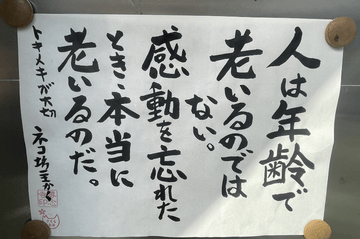 人は年齢で
老いるのでは
ない。
感動を忘れた
とき、本当に
老いるのだ。
トキメキが大切
ネコ坊主から